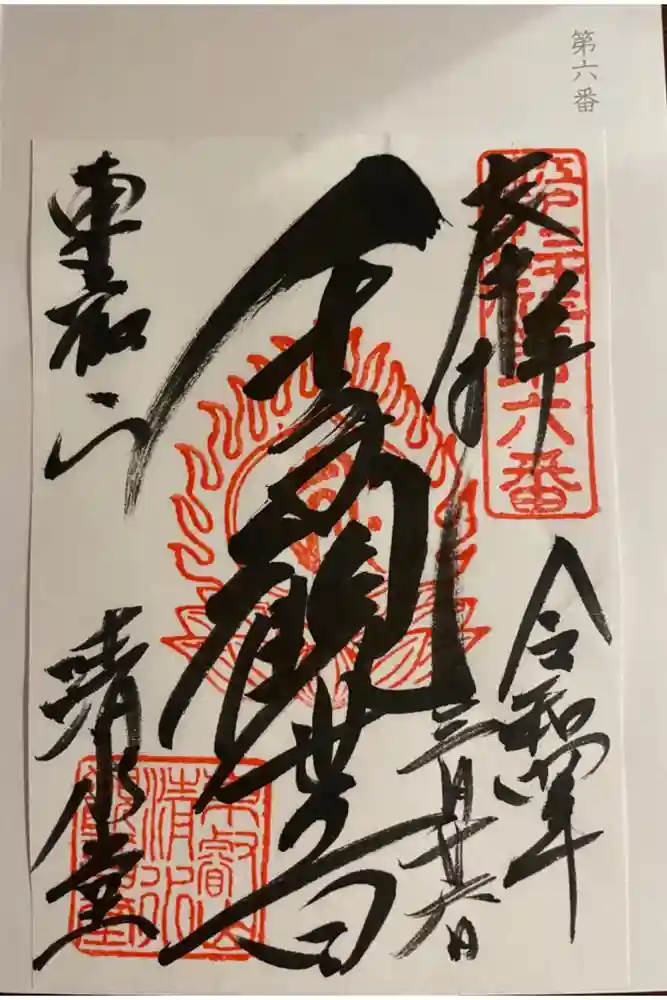 第六番
奉拝
第六番
令和四年
三月廿六日
千手觀世音
東叡山
清水堂
東叡山
清水
觀音堂